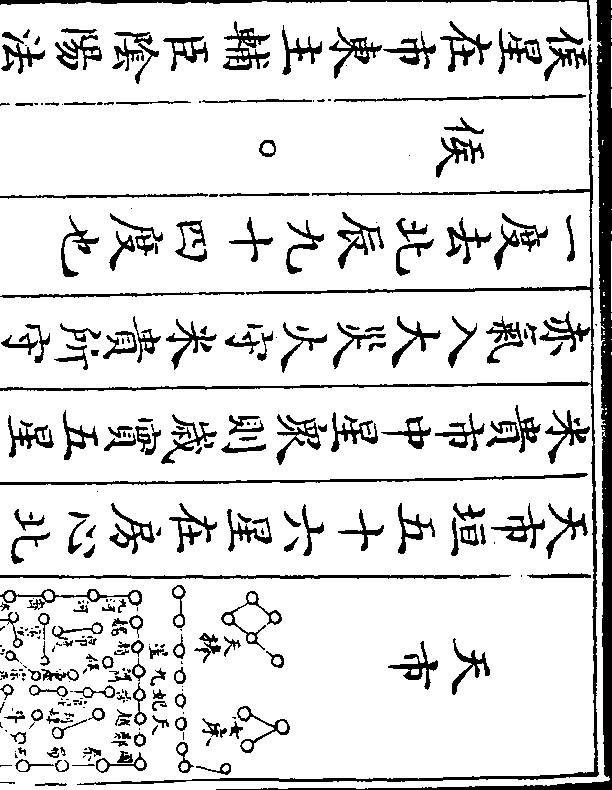 天市
女床
天棓
天紀九星
天市垣五十六星在房心北
米貴市中星眾則歲實五星
赤氣入大災火守米貴所守
一度去北辰九十四度也
候
候星在市東主輔臣陰陽法